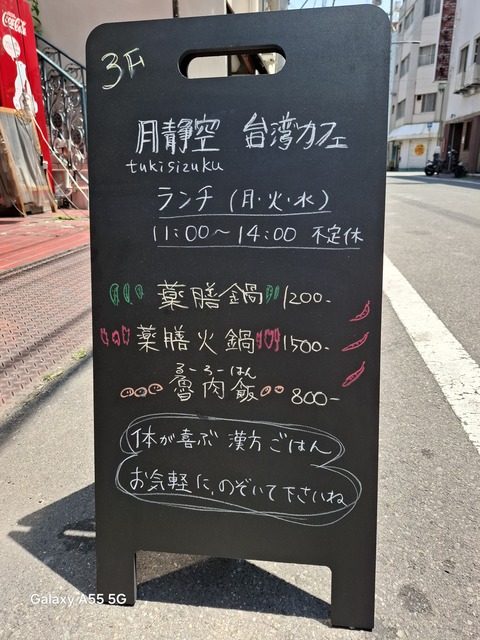 3F
月静空 台湾カフェ
tukisizuku
ランチ (月・火・水)
11:00〜14:00 不定休
薬膳鍋 1200-
薬膳火鍋 1500-
るーろーはん
魯肉飯 800-
体が喜ぶ 漢方ごはん
お気軽に、のぞいて下さいね
Galaxy A55 5G